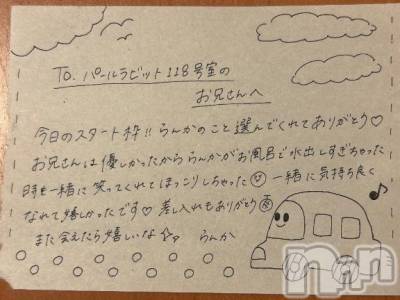 To. パールラビット118号室の
お兄さんへ
今日のスタート枠!! らんかのこと選んでくれてありがとう♡
お兄さんは優しかったかららんかがお風呂で水出しすぎちゃった
時も一緒に笑ってくれてほっこりしちゃった 一緒に気持ち良く
なれて嬉しかったです♡ 差し入れもありがとう
また会えたら嬉しいな らんか